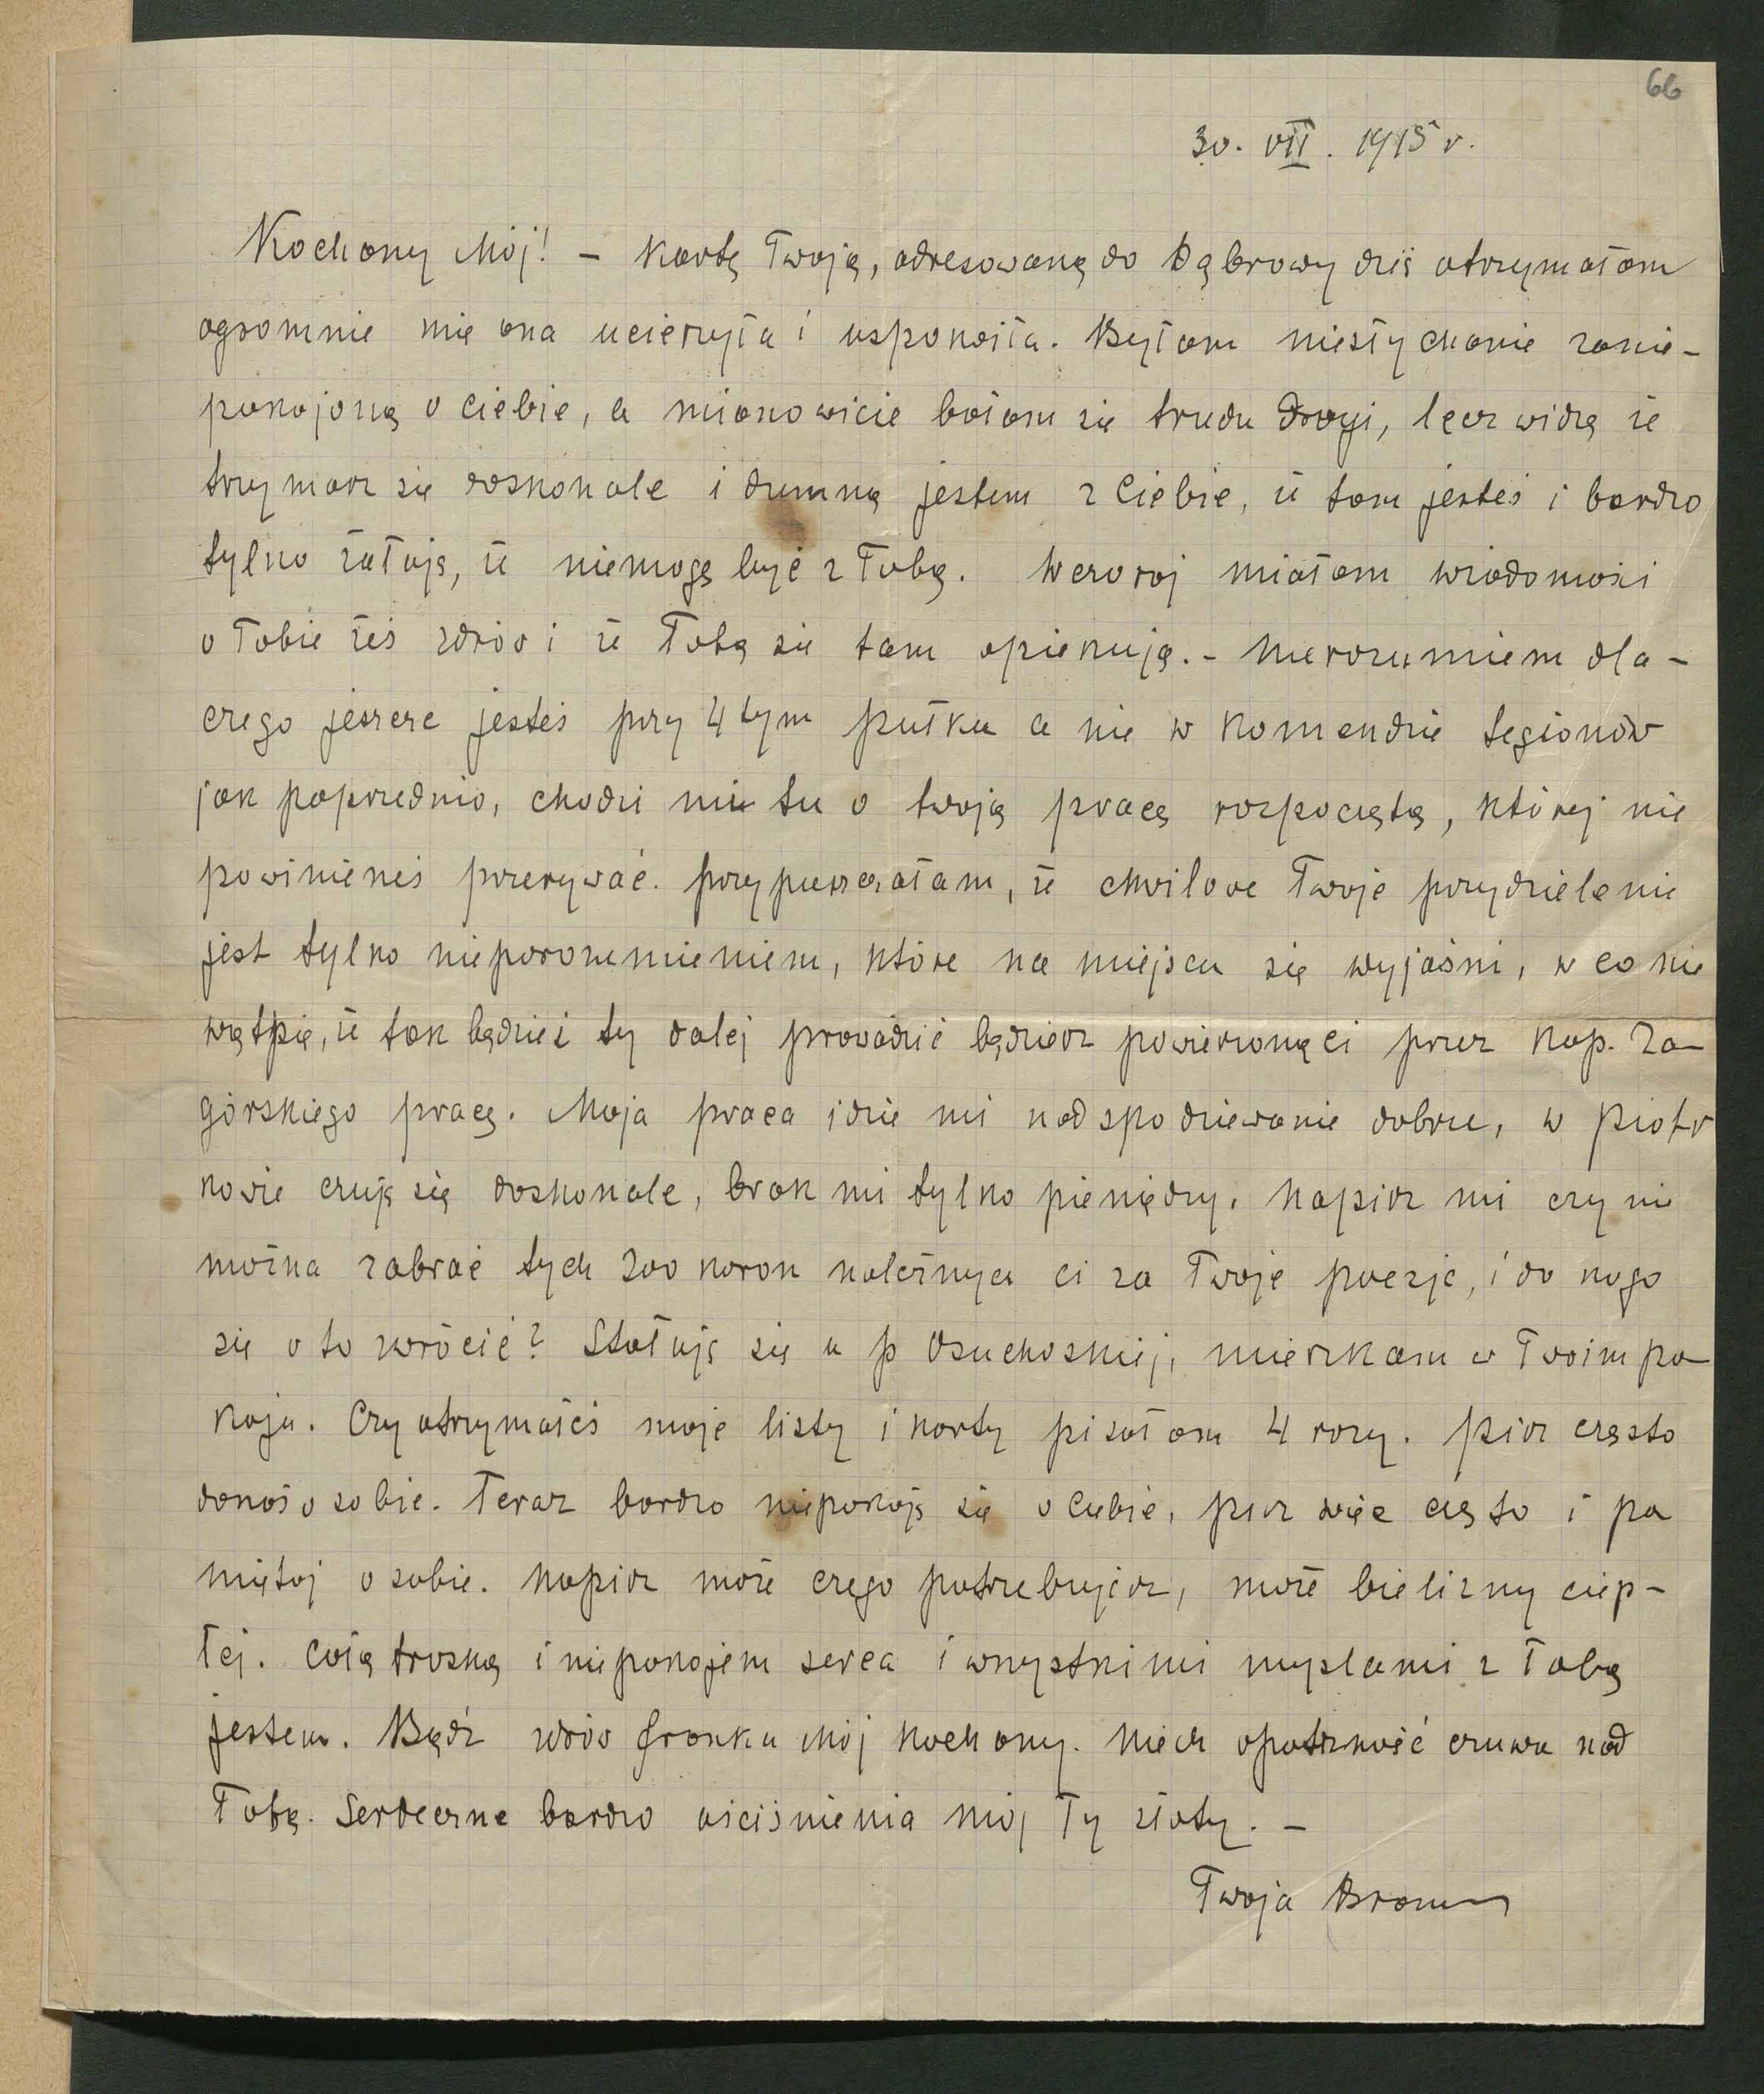 66
30. VII. 1915 r.
Kochany Mój! – Kartę Twoją, adresowaną do Dąbrowy dziś otrzymałam
ogromnie mię ona ucieszyła i uspokoiła. Byłam niesłychanie zanie-
pokojoną o Ciebie, a mianowicie bałam się trudu drogi, lecz widzę że
trzymasz się doskonale i dumną jestem z Ciebie, że tam jesteś i bardzo
tylko żałuję, że niemogę być z Tobą. Wczoraj miałam wiadomości
o Tobie żeś zdrów i że Tobą się tam opiekują. – Nierozumiem dla-
czego jeszcze jesteś przy 4tym pułku a nie w Komendzie Legionów
jak poprzednio, chodzi mi tu o twoją pracę rozpoczętą, której nie
powinieneś przerywać. Przypuszczałam, że chwilowe Twoje przydzielenie
jest tylko nieporozumieniem, które na miejscu się wyjaśni, w co nie
wątpię, że tak będzie i ty dalej prowadzić będziesz powierzoną ci przez Kap. Za-
górskiego pracę. Moja praca idzie mi nadspodziewanie dobrze, w Piotr
kowie czuję się doskonale, brak mi tylko pieniędzy. Napisz mi czy nie
można zabrać tych 200 koron należnych ci za Twoje poezje, i do kogo
się o to zwrócić? Stołuję się u p Osuchoskiej, mieszkam w Twoim po-
koju. Czy otrzymałeś moje listy i karty pisałam 4 razy. Pisz często
donoś o sobie. Teraz bardzo niepokoję się o Ciebie, pisz więc często i pa
miętaj o sobie. Napisz może czego potrzebujesz, może bielizny ciep-
łej. Całą troską i niepokojem serca i wszystkimi myślami z Tobą
jestem. Bądź zdrów Franku Mój kochany. Niech opatrzność czuwa nad
Tobą. Serdeczne bardzo uściśnienia mój Ty złoty. –
Twoja